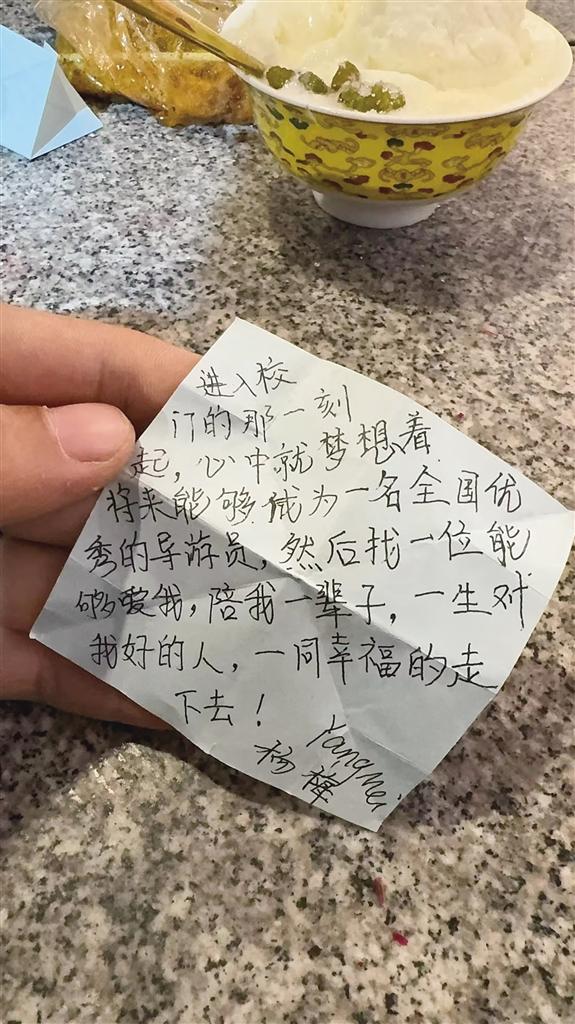 进入校
门的那一刻
起，心中就梦想着
将来能够成为一名全国优
秀的导游员，然后找一位能
够爱我，陪我一辈子，一生对
我好的人，一同幸福的走
下去！
YangMei
杨梅